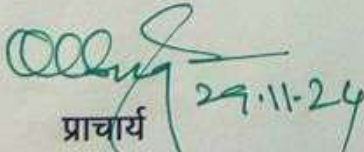 29.11.24
प्राचार्य